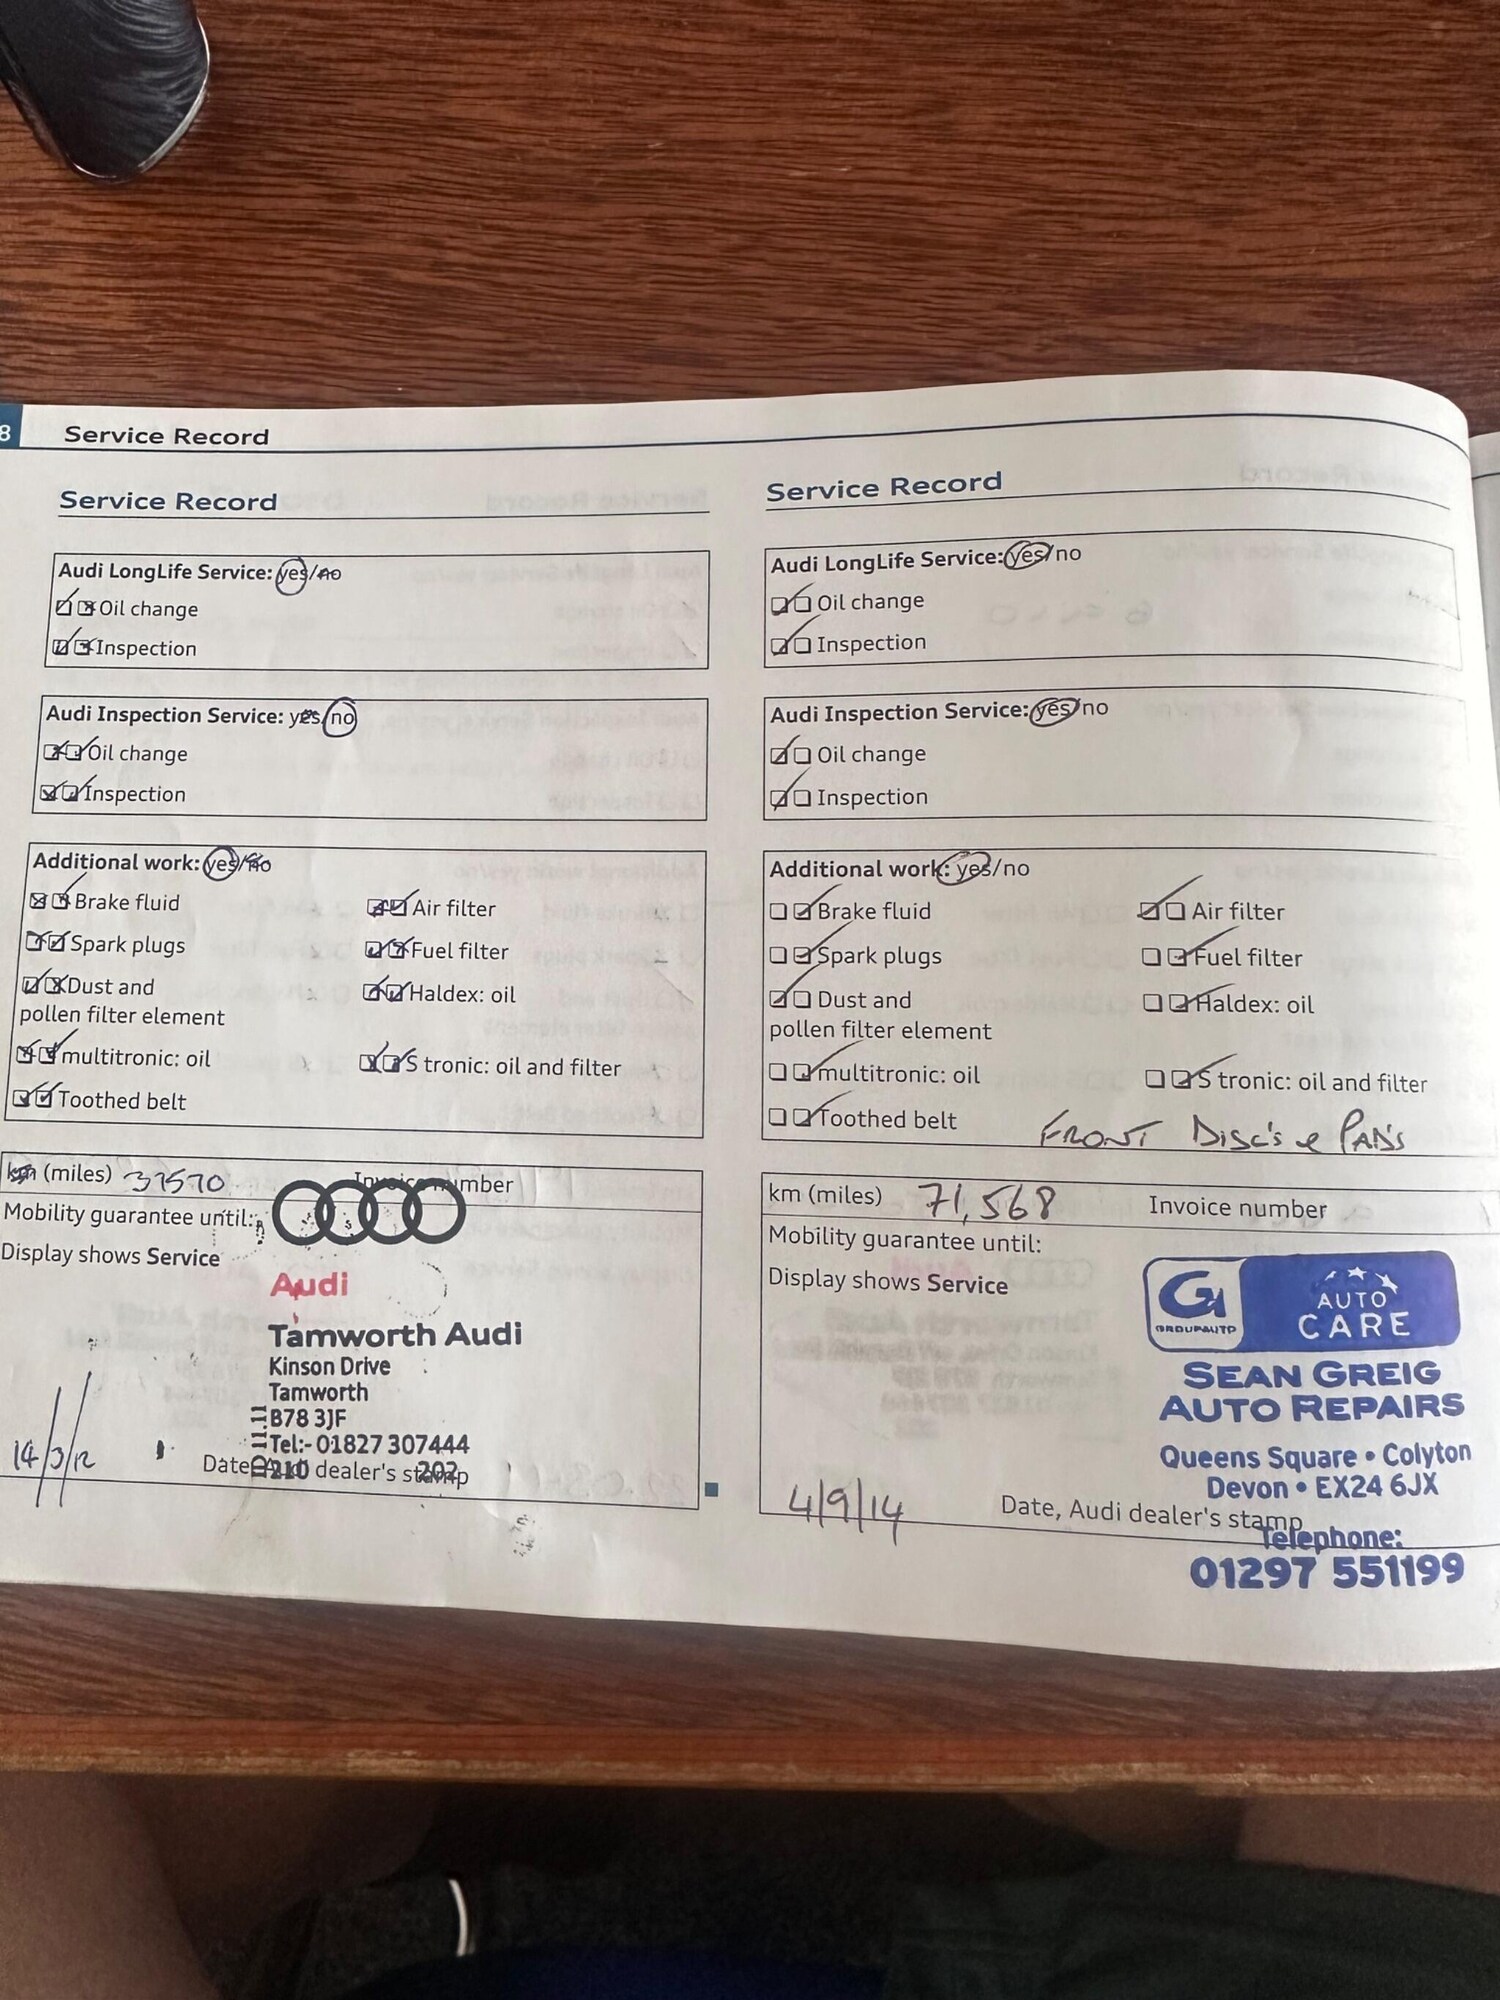 8 Service Record
Service Record
Audi LongLife Service: yes/no
Oil change
Inspection
Audi Inspection Service: yes/no
Oil change
Inspection
Additional work: yes/no
Brake fluid Air filter
Spark plugs Fuel filter
Dust and Haldex: oil
pollen filter element
multitronic: oil S tronic: oil and filter
Toothed belt
km (miles) 37570 Invoice number
Mobility guarantee until:
Display shows Service
Audi
Tamworth Audi
Kinson Drive
Tamworth
B78 3JF
Tel:- 01827 307444
210 202
14/3/12
Date, Audi dealer's stamp
Service Record
Audi LongLife Service: yes/no
Oil change
Inspection
Audi Inspection Service: yes/no
Oil change
Inspection
Additional work: yes/no
Brake fluid Air filter
Spark plugs Fuel filter
Dust and Haldex: oil
pollen filter element
multitronic: oil S tronic: oil and filter
Toothed belt FRONT DISC'S & PADS
km (miles) 71,568 Invoice number
Mobility guarantee until:
Display shows Service
GROUPAUTO
AUTO
CARE
SEAN GREIG
AUTO REPAIRS
Queens Square • Colyton
Devon • EX24 6JX
4/9/14 Date, Audi dealer's stamp
Telephone:
01297 551199